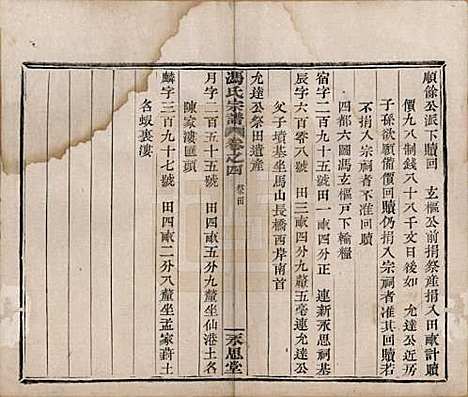 順餘公派下贖回　玄樞公前捐祭產捐入田畝計贖
價九八制錢八十八千文日後如　允達公近房
子孫欲願備價回贖仍捐入宗祠者准其回贖若
不捐入宗祠者不准回贖
四都六圖馮玄樞戶下輸糧
宿字二百九十四號　田一畝四分正　連新永思祠基
辰字六百零八號　田三畝四分九釐五毫連允達公
父子墳基坐馬山長橋西岸南首
允達公祭田遺產
馮氏宗譜　卷之四　祭田
永思堂
月字二百五十五號　田四畝四分九釐坐仙港土名
陳家漊匯頭
麟字三百九十七號　田四畝二分八釐坐孟家葑土
名蝦裏漊